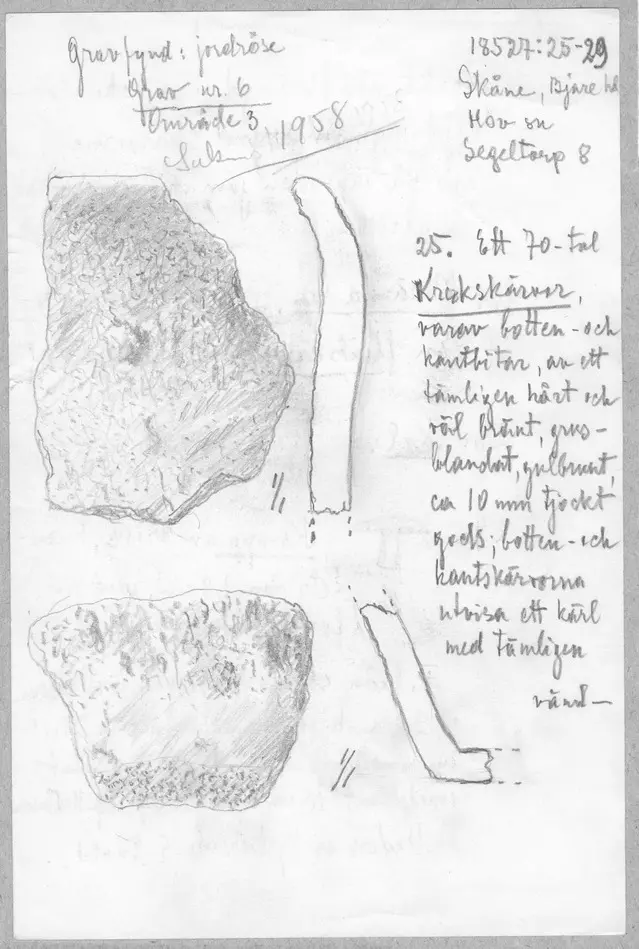 Gravfynd: jordröse
Grav nr. 6
Område 3
1958
18527:25-29
Skåne, Bjäre hd
Hov sn
Segeltorp 8
25. Ett 70-tal
Krukskärvor,
varav botten- och
kantbitar, av ett
tämligen hårt och
väl bränt, grus-
blandat, gulbrunt,
ca 10 mm tjockt
gods; botten- och
kantskärvorna
utvisa ett kärl
med tämligen
1/1
1/1